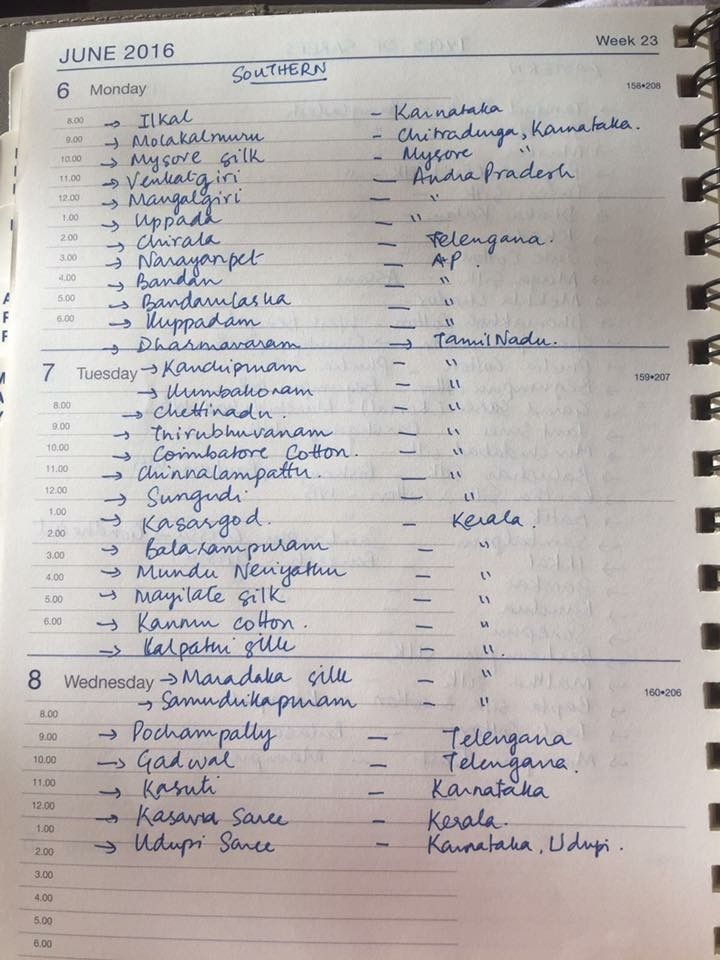 JUNE 2016
Week 23
SOUTHERN
6 Monday
158•208
8.00 → Ilkal - Karnataka
9.00 → Molakalmuru - Chitradurga, Karnataka.
10.00 → Mysore silk - Mysore "
11.00 → Venkatgiri — Andra Pradesh
12.00 → Mangalgiri — "
1.00 → Uppada — "
2.00 → Chirala — Telengana.
3.00 → Narayanpet — AP.
4.00 → Bandan — "
5.00 → Bandarulanka — "
6.00 → Kuppadam — "
→ Dharmavaram → Tamil Nadu.
7 Tuesday → Kandipuram — "
159•207
→ Kumbakonam — "
8.00 → Chettinadu. — "
9.00 → Thirubhuvanam — "
10.00 → Coimbatore Cotton. — "
11.00 → Chinnalampattu. — "
12.00 → Sungudi — "
1.00 → Kasargod. — Kerala.
2.00
3.00 → Balarampuram — "
4.00 → Mundu Neriyathu — "
5.00 → Mayilate silk — "
6.00 → Kannur cotton. — "
→ Kalpathi silk — ".
8 Wednesday → Maradaka silk — "
160•206
→ Samudrikapuram — "
8.00
9.00 → Pochampally — Telengana
10.00 → Gadwal — Telengana.
11.00 → Kasuti — Karnataka
12.00 → Kasava Saree — Kerala.
1.00
2.00 → Udupi Saree — Karnataka, Udupi.
3.00
4.00
5.00
6.00